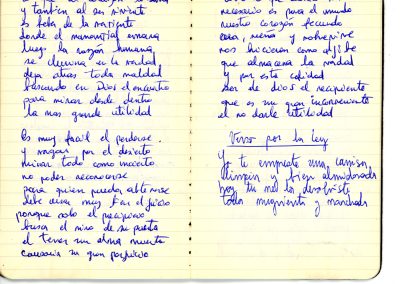 y también al ser viviente
es falta de la naciente
donde el manantial emana
luego la razón humana
se derrama en la verdad
deja atras toda maldad
buscando en Dios el encuentro
para mirar desde dentro
la mas grande utilidad
Es muy facil el perderse
y vagar por el desierto
mirar todo como incierto
no poder reconocerse
para quien pueda abtenerse
debe estar muy bien el juicio
porque solo el
busca el mino de su puesta
el tener su alma muerta
causaria su gran perjuicio
necesario es para el mundo
nuestro corazón fecundo
nos hicieron como aljibe
que almacena la verdad
y por esta calidad
ser de dios el recipiente
que es un gran inconveniente
el no darle utilidad
Verso por la ley
Yo te empresté una camisa,
limpia y bien almidonada
hoy tu me la devolviste
toda mugrienta y manchada